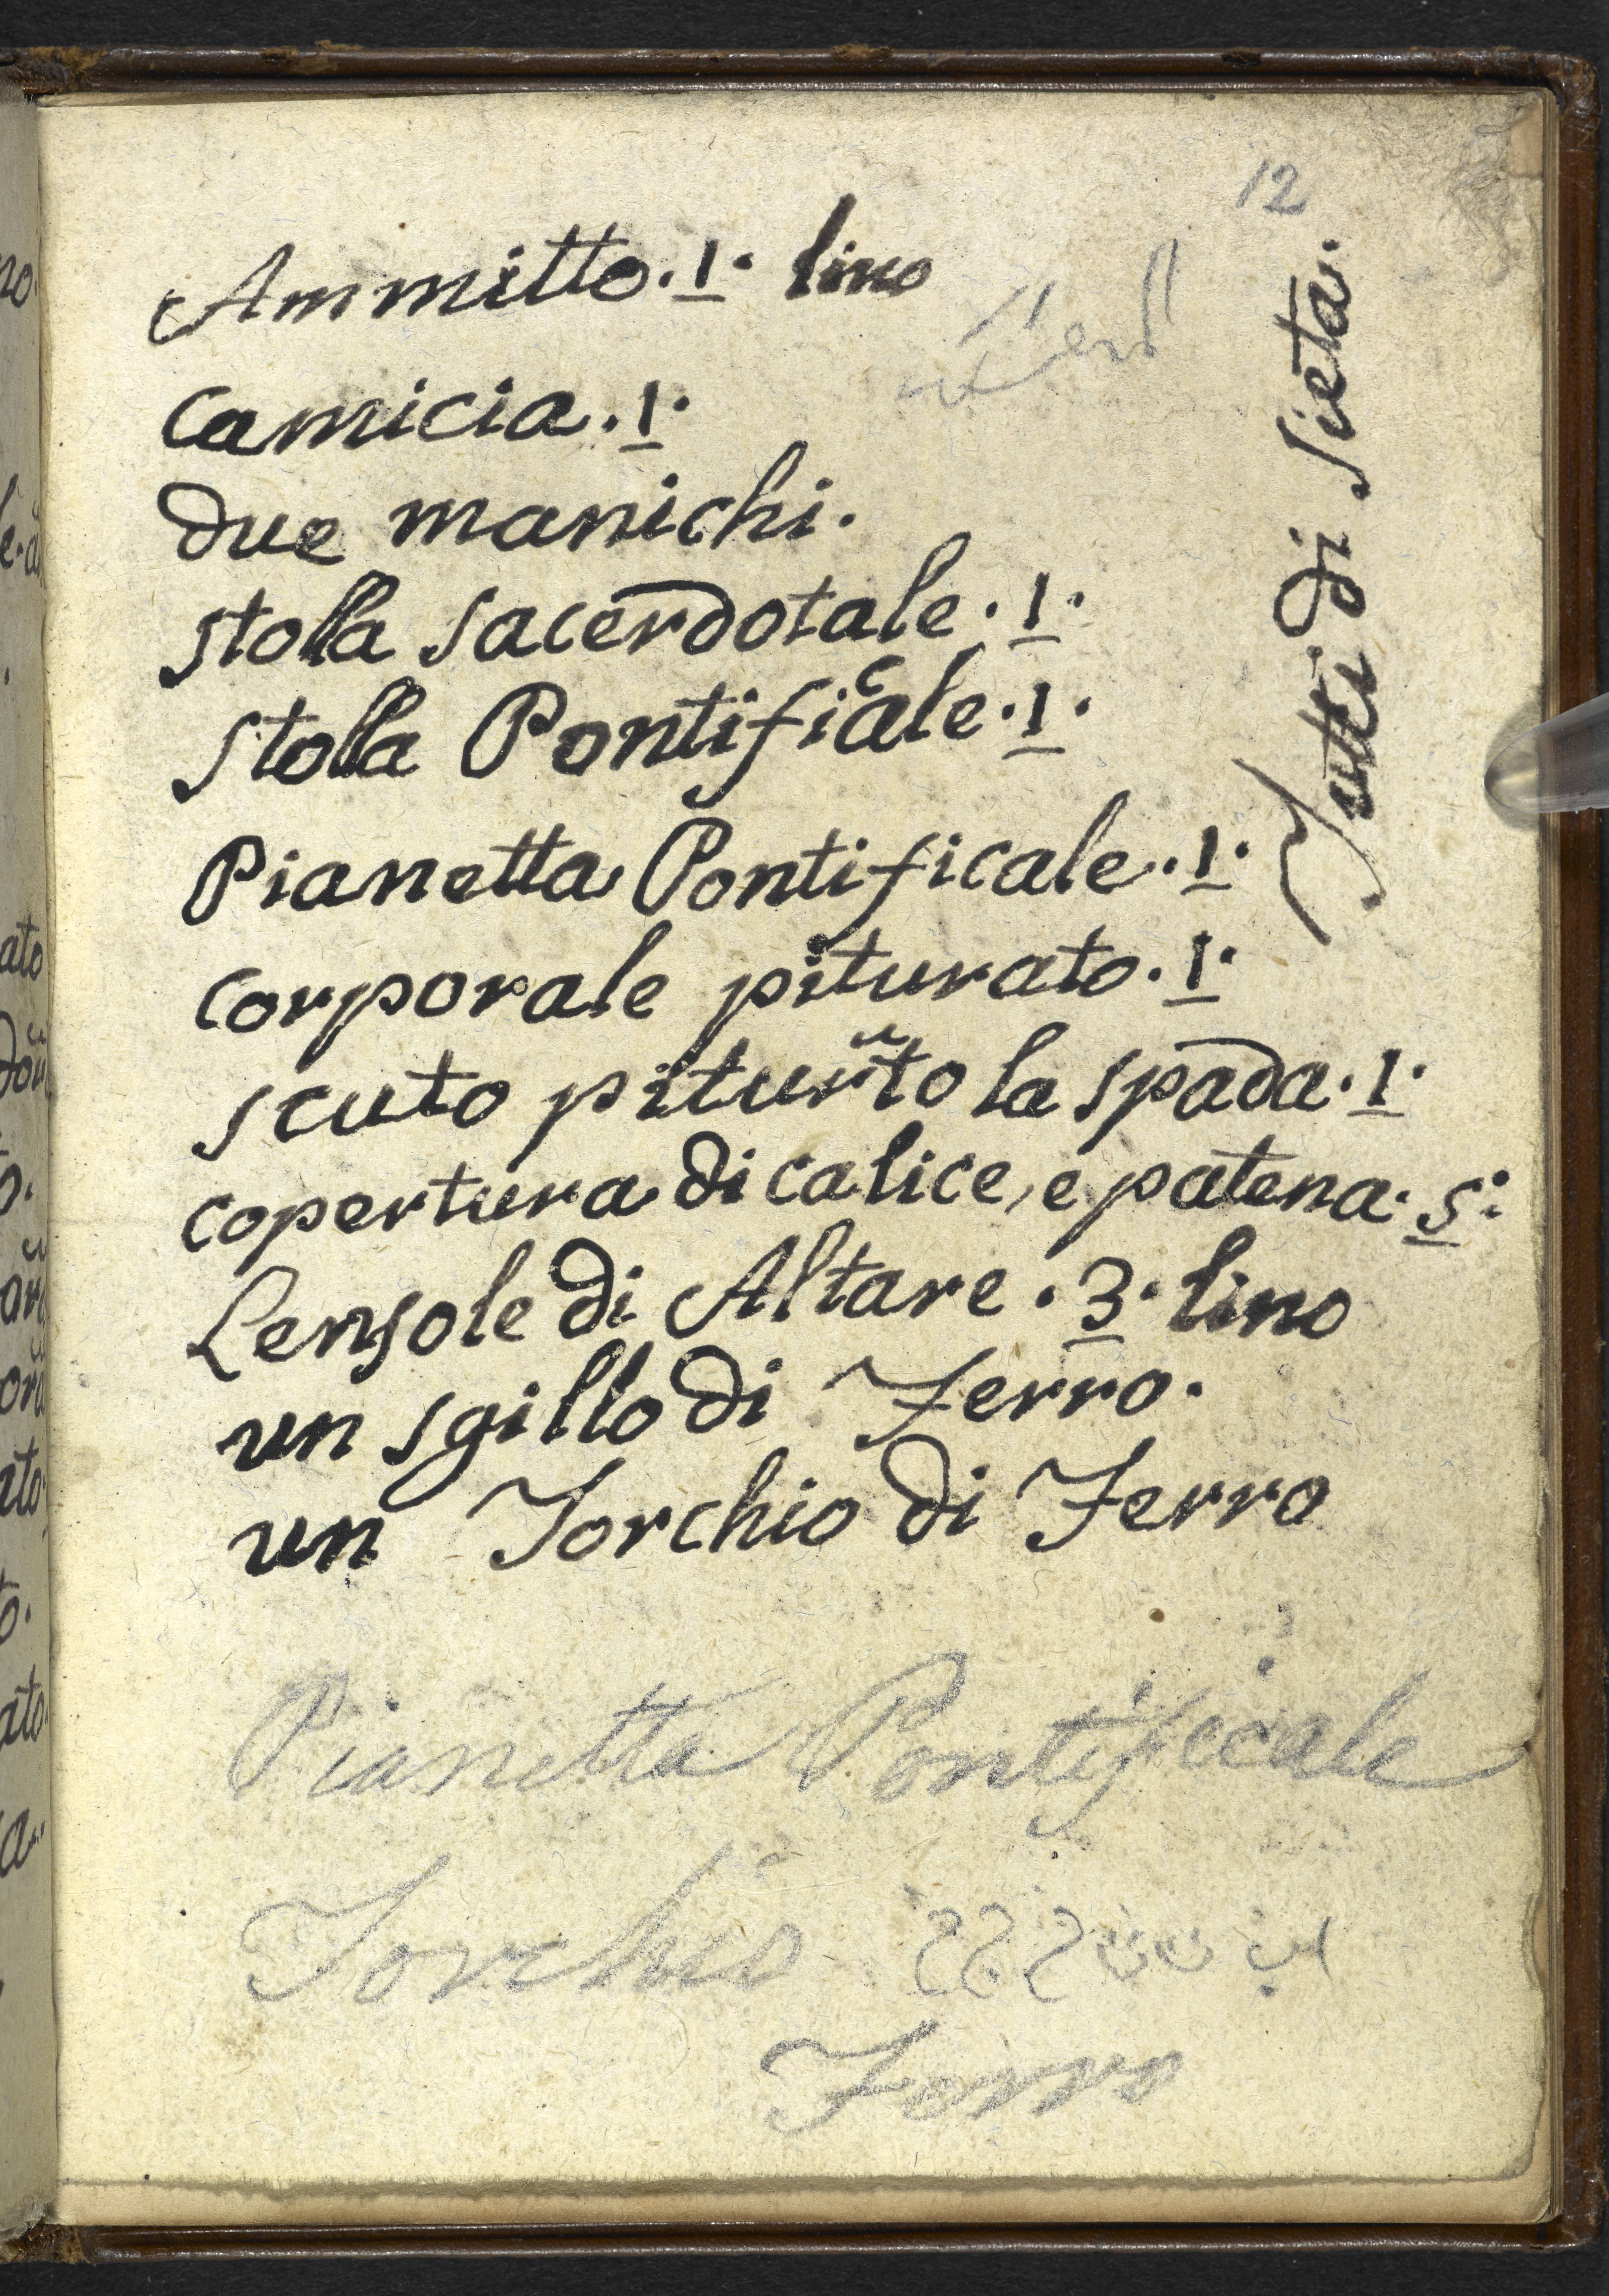 12
Ammitto. 1. lino
camicia. 1.
due manichi.
stolla sacerdotale. 1.
stolla Pontificale. 1.
Pianetta Pontificale. 1.
corporale piturato. 1.
scuto piturato la spada. 1.
copertura di calice, e patena. 5.
Lensole di Altare. 3. lino
un sgillo di Ferro.
un Torchio di Ferro
Tutti di Sieta.
Pianetta Pontificale
Torchio
Ferro